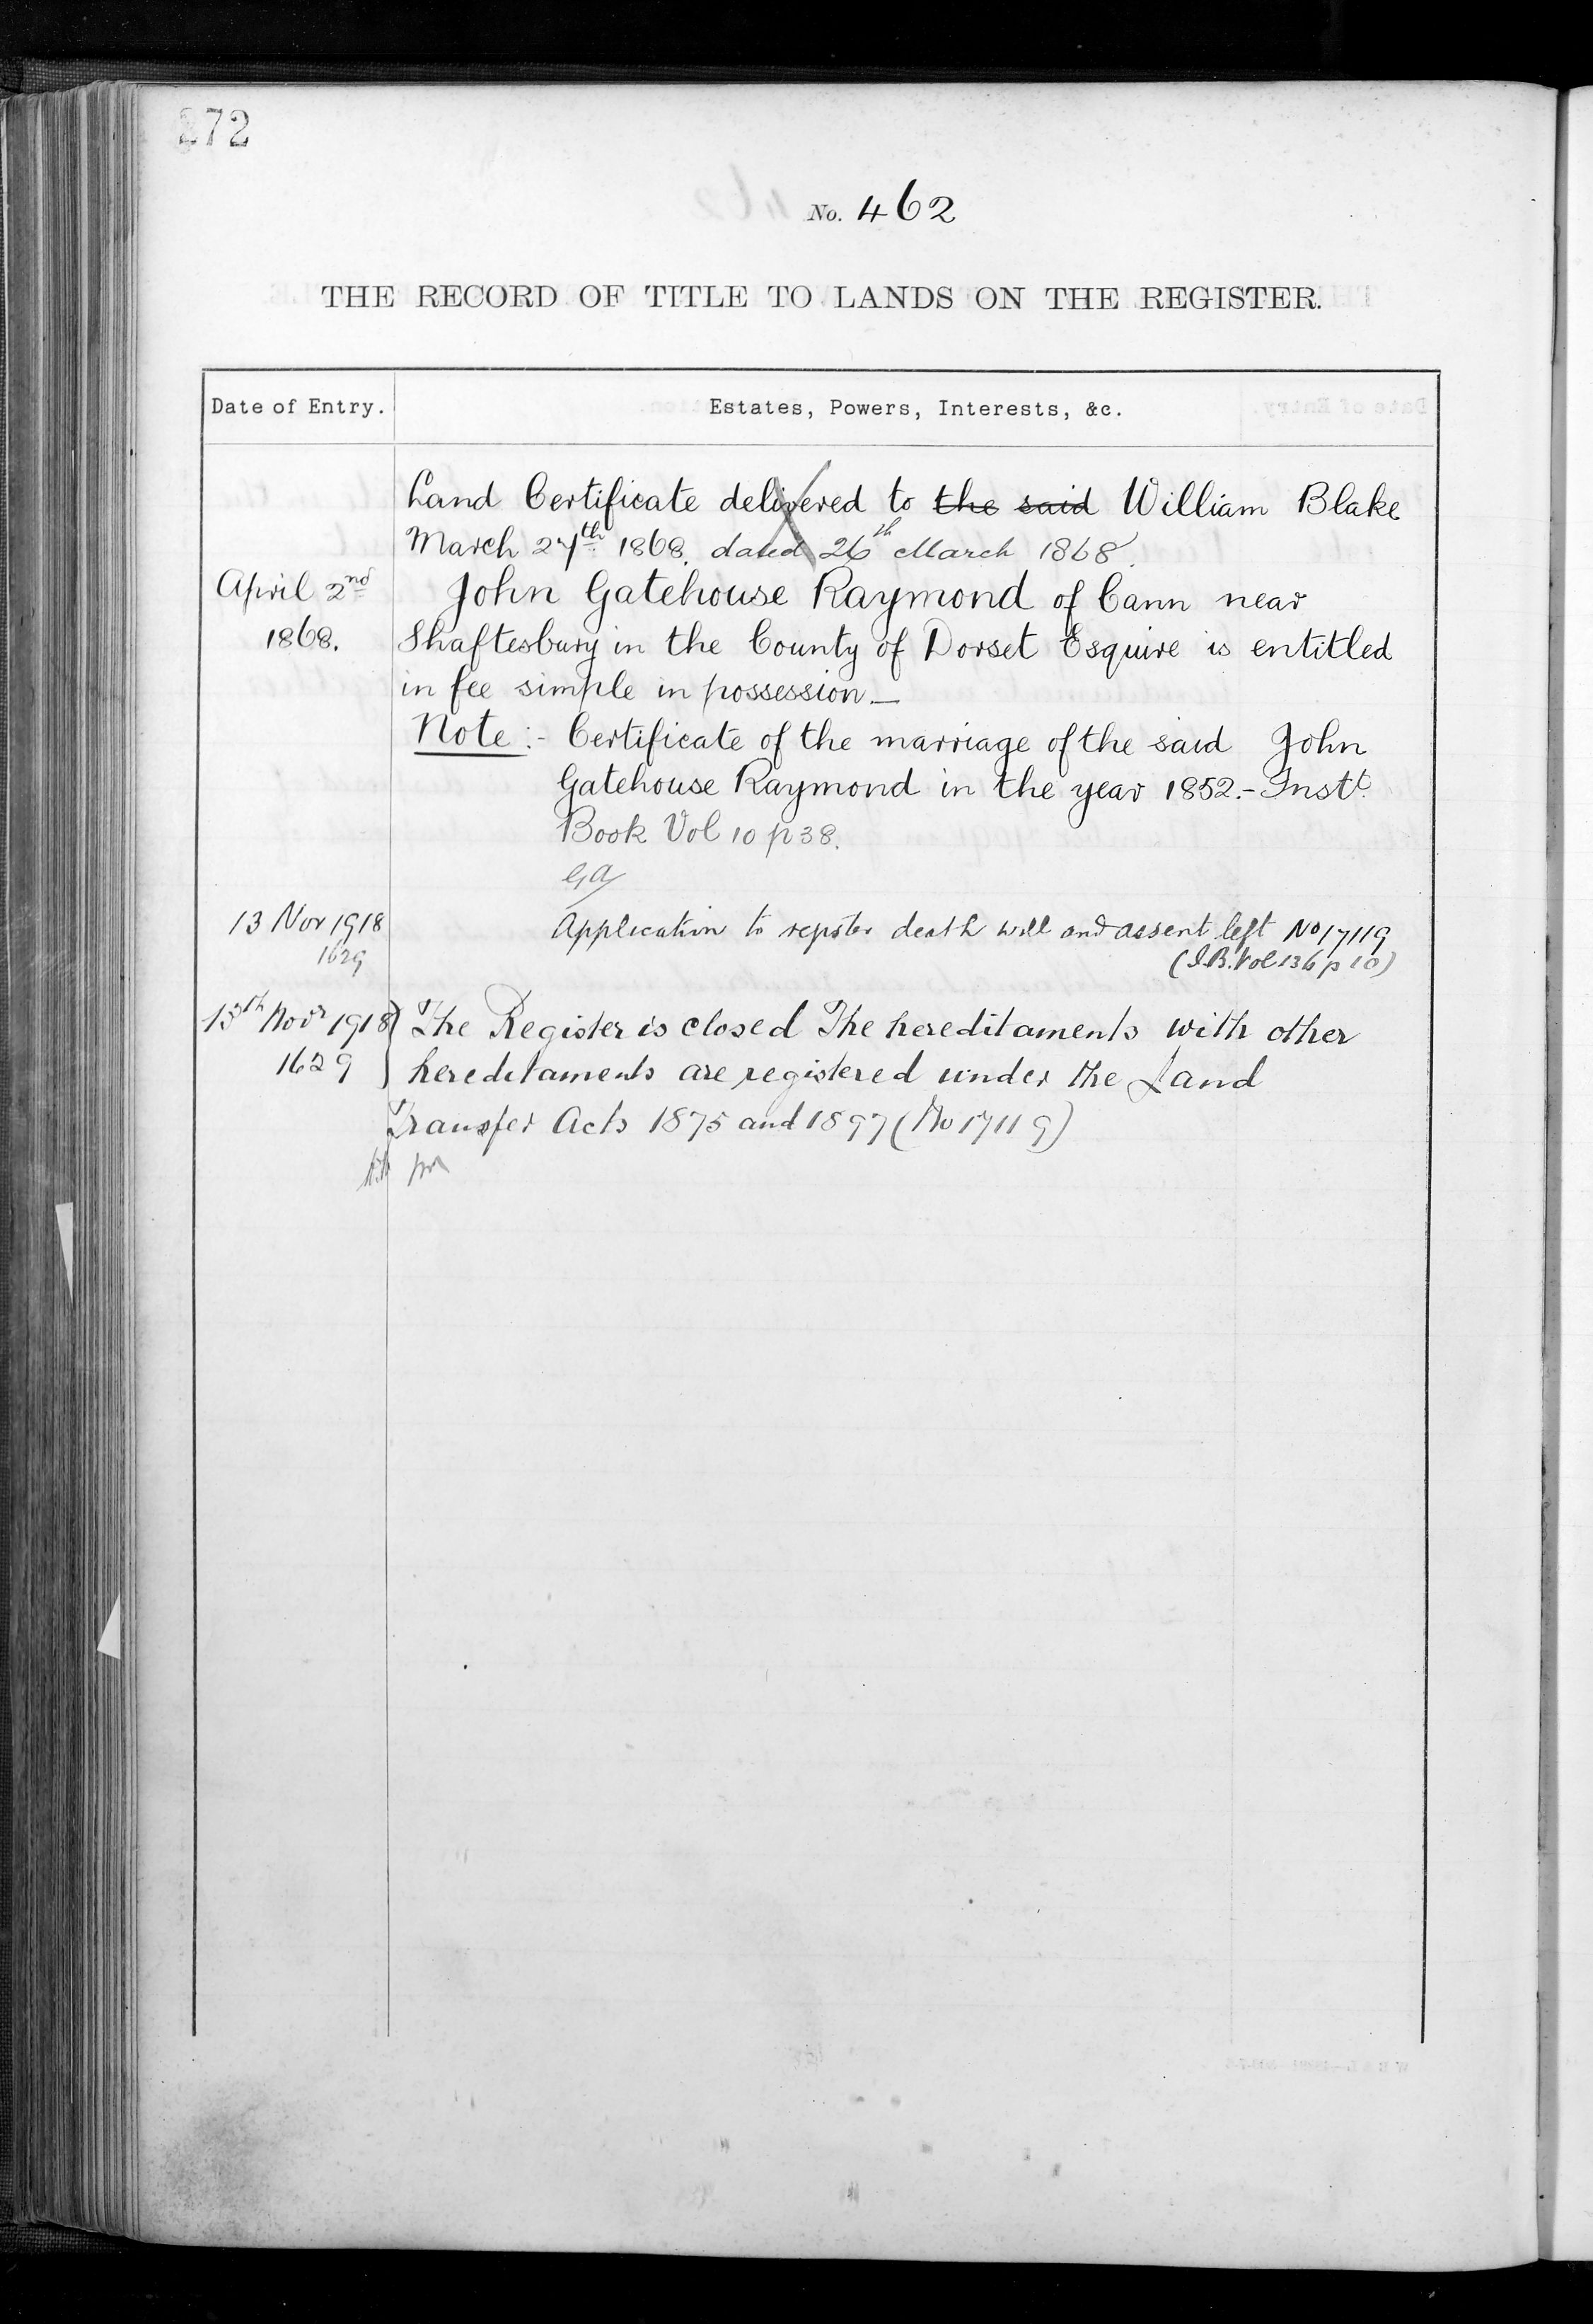 272
No. 462
THE RECORD OF TITLE TO LANDS ON THE REGISTER.
Date of Entry. Estates, Powers, Interests, &c.
Land Certificate delivered to the said William Blake
March 27th 1868. dated 26th March 1868.
April 2nd John Gatehouse Raymond of Cann near
1868. Shaftesbury in the County of Dorset Esquire is entitled
in fee simple in possession.—
Note:- Certificate of the marriage of the said John
Gatehouse Raymond in the year 1852.- Instt.
Book Vol 10 p 38.
13 Nov 1918 Application to register death will and assent left No 17119
1629 (I.B. Vol 136 p 10)
13th Novr 1918 The Register is closed The hereditaments with other
1629 hereditaments are registered under the Land
Transfer Acts 1875 and 1897 (No 17119)